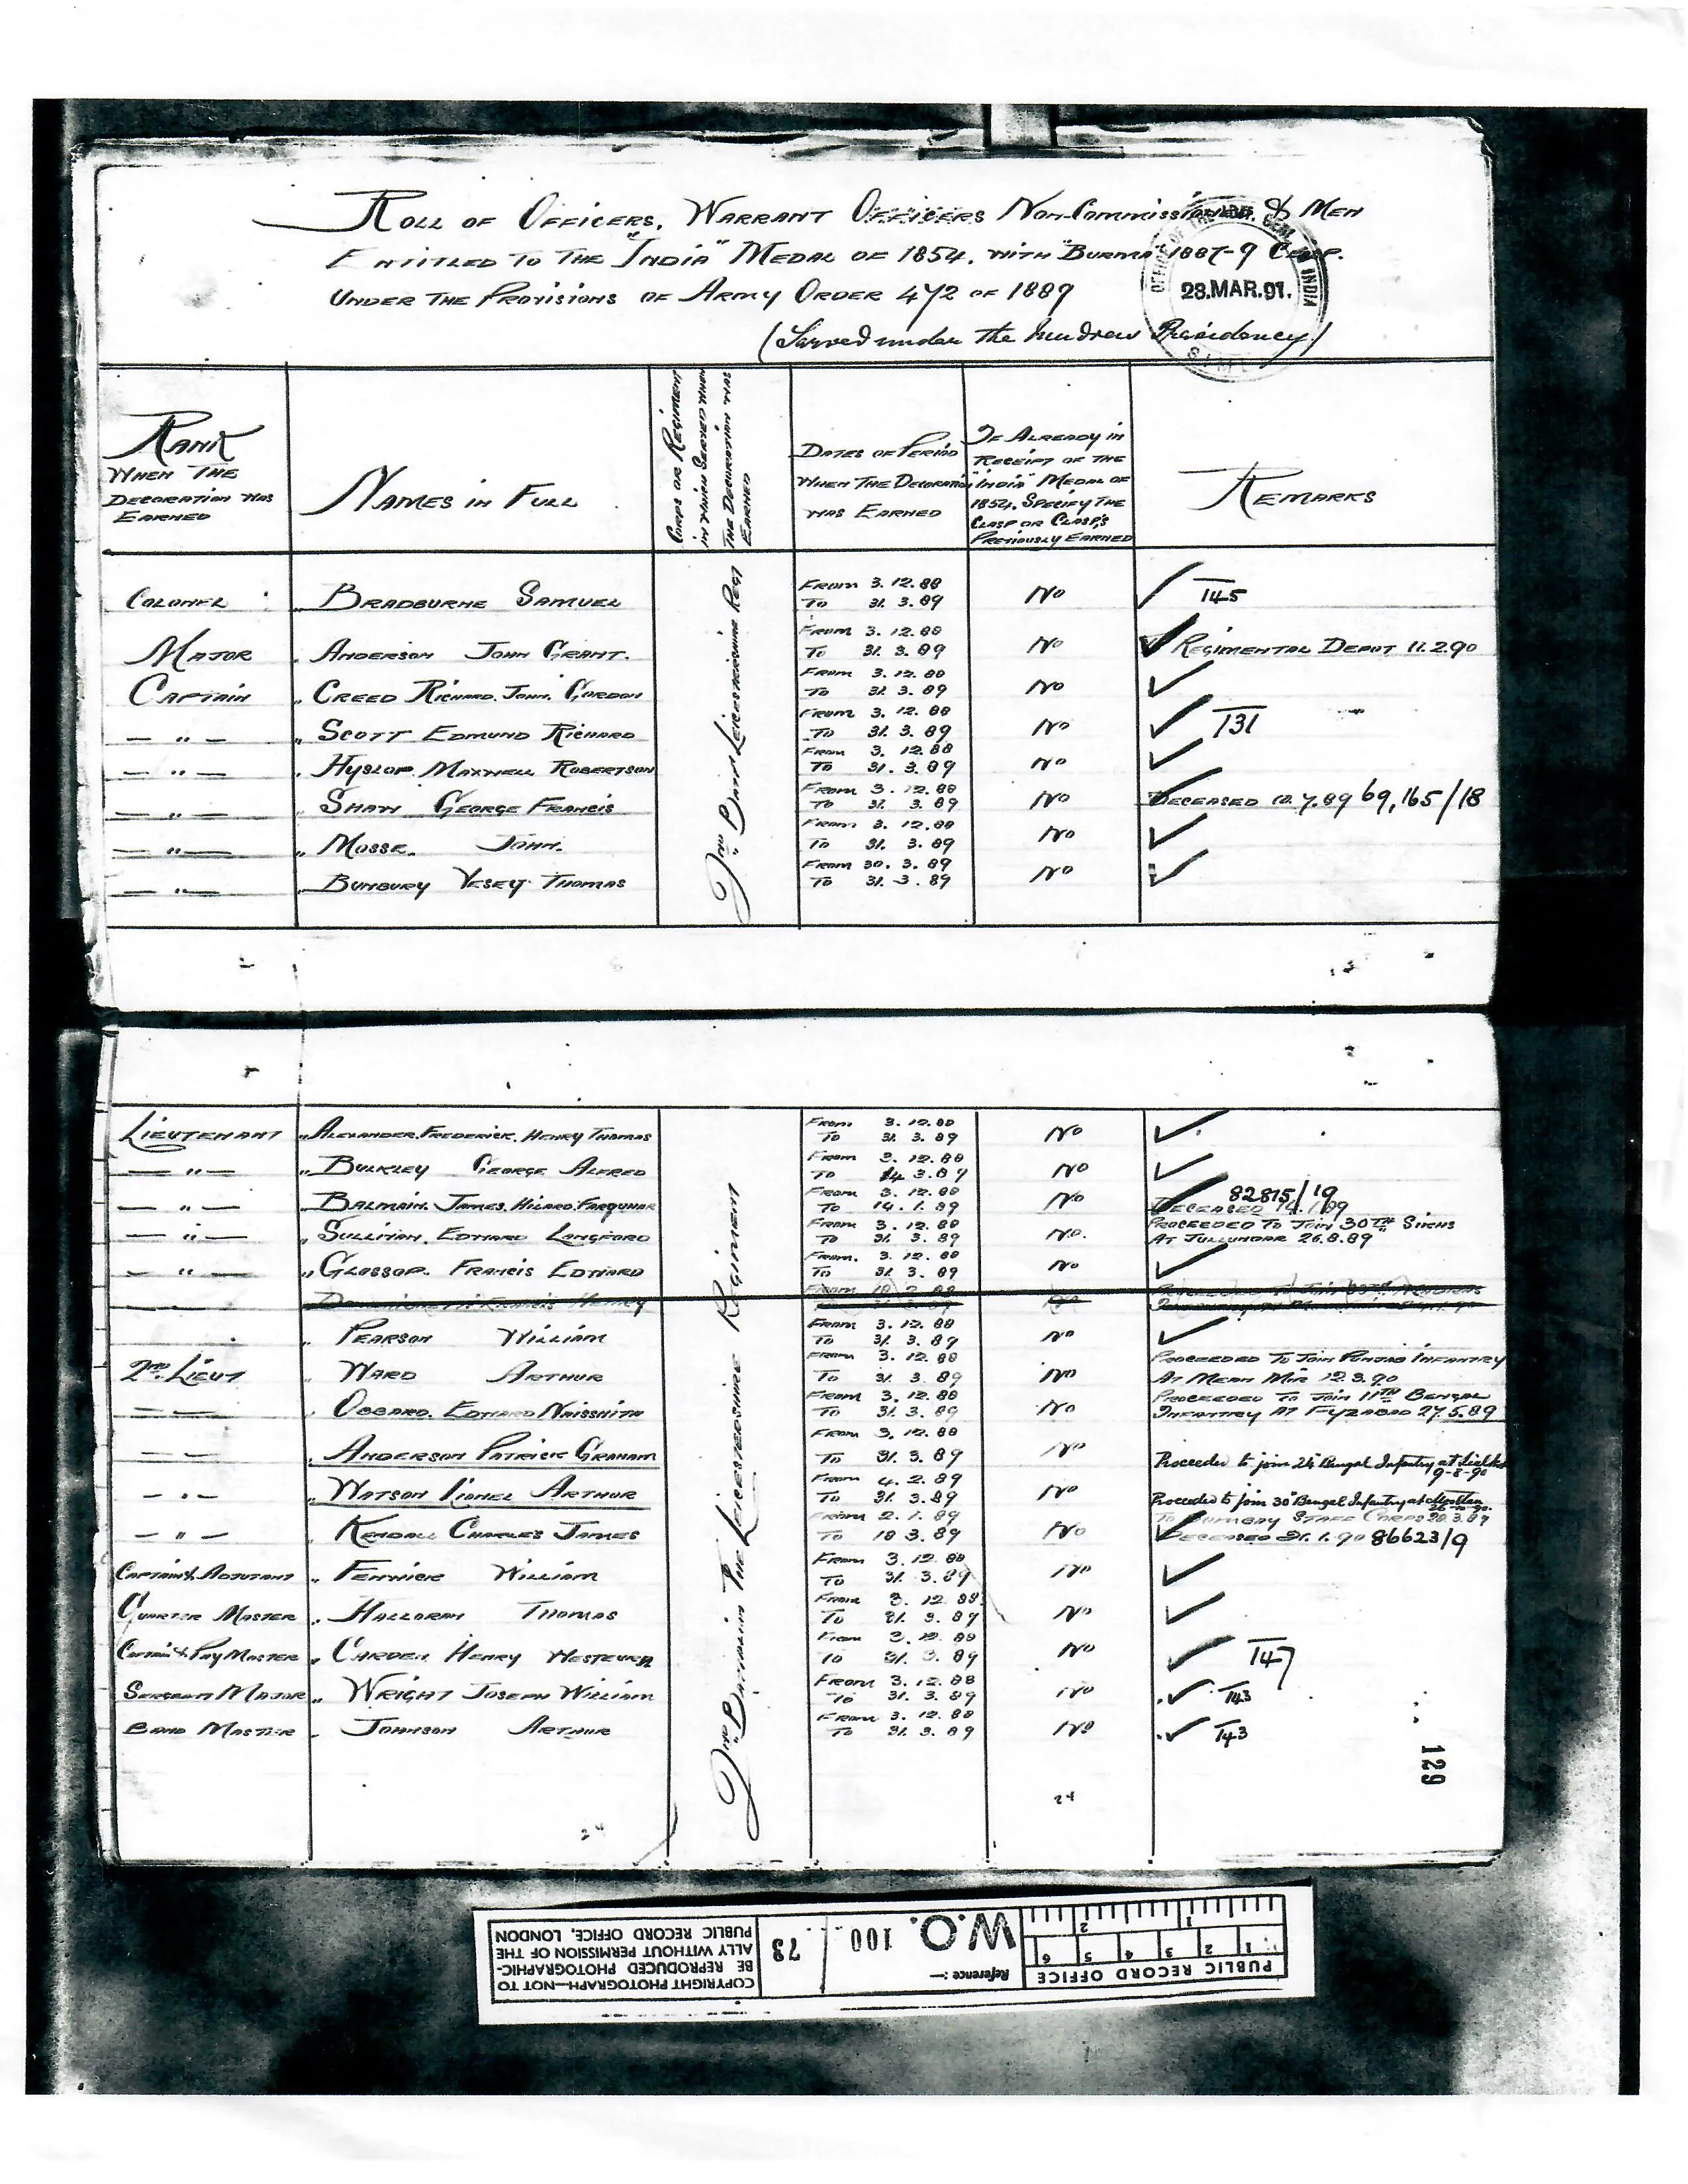 ROLL OF OFFICERS, WARRANT OFFICERS NON-COMMISSIONED & MEN
ENTITLED TO THE "INDIA" MEDAL OF 1854, WITH "BURMA" 1887-9 CLASP.
UNDER THE PROVISIONS OF ARMY ORDER 472 OF 1889
(Served under the Madras Presidency)
OFFICE OF THE INDIA
28.MAR.91.
RANK WHEN THE DECORATION WAS EARNED
NAMES IN FULL
CORPS OR REGIMENT IN WHICH SERVED WHEN THE DECORATION WAS EARNED
DATES OF PERIOD WHEN THE DECORATION WAS EARNED
IF ALREADY IN RECEIPT OF THE "INDIA" MEDAL OF 1854, SPECIFY THE CLASP OR CLASPS PREVIOUSLY EARNED
REMARKS
2ND BATTN LEICESTERSHIRE REGT
COLONEL " BRADBURNE SAMUEL FROM 3.12.88 TO 31.3.89 NO ✓ 145
MAJOR " ANDERSON JOHN GRANT. FROM 3.12.88 TO 31.3.89 NO ✓ REGIMENTAL DEPOT 11.2.90
CAPTAIN " CREED RICHARD. JOHN. GORDON FROM 3.12.88 TO 31.3.89 NO ✓
— " — " SCOTT EDMUND RICHARD FROM 3.12.88 TO 31.3.89 NO ✓ 131
— " — " HYSLOP. MAXWELL ROBERTSON FROM 3.12.88 TO 31.3.89 NO ✓
— " — " SHAW GEORGE FRANCIS FROM 3.12.88 TO 31.3.89 NO DECEASED 10.7.89 69,165/18
— " — " MOSSE. JOHN. FROM 3.12.88 TO 31.3.89 NO ✓
— " — " BUNBURY VESEY THOMAS FROM 30.3.89 TO 31.3.89 NO ✓
2ND BATTALION THE LEICESTERSHIRE REGIMENT
LIEUTENANT " ALEXANDER. FREDERICK. HENRY THOMAS FROM 3.12.88 TO 31.3.89 NO ✓
— " — " BULKLEY GEORGE ALFRED FROM 3.12.88 TO 14.3.89 NO ✓
— " — " BALMAIN. JAMES. HILARO. FARQUHAR FROM 3.12.88 TO 14.1.89 NO ✓ 82815/19 DECEASED 14.1.89
— " — " SULLIVAN. EDWARD LONGFORD FROM 3.12.88 TO 31.3.89 NO. PROCEEDED TO JOIN 30TH SIKHS AT JULLUNDAR 26.8.89
— " — " GLOSSOP. FRANCIS EDWARD FROM 3.12.88 TO 31.3.89 NO ✓
FRANCIS HENRY
" PEARSON WILLIAM FROM 3.12.88 TO 31.3.89 NO ✓
2ND LIEUT " WARD ARTHUR FROM 3.12.88 TO 31.3.89 NO PROCEEDED TO JOIN PUNJAB INFANTRY AT MEAN MIR 12.3.90
— " — " OBBARD. EDWARD NAISSMITH FROM 3.12.88 TO 31.3.89 NO PROCEEDED TO JOIN 11TH BENGAL INFANTRY AT FYZABAD 27.5.89
— " — ANDERSON PATRICK GRAHAM FROM 3.12.88 TO 31.3.89 NO Proceeded to join 24 Bengal Infantry at 9-8-90
— " — " WATSON LIONEL ARTHUR FROM 4.2.89 TO 31.3.89 NO Proceeded to join 30 Bengal Infantry at Mooltan
— " — " KENDALL CHARLES JAMES FROM 2.1.89 TO 18.3.89 NO TO BOMBAY STAFF CORPS DECEASED 21.1.90 86623/9
CAPTAIN & ADJUTANT " FENWICK WILLIAM FROM 3.12.88 TO 31.3.89 NO ✓
QUARTER MASTER " HALLORAN THOMAS FROM 3.12.88 TO 31.3.89 NO ✓
CAPTAIN & PAY MASTER " CARDEN HENRY WESTENRA FROM 3.12.88 TO 31.3.89 NO ✓ 147
SERGEANT MAJOR " WRIGHT JOSEPH WILLIAM FROM 3.12.88 TO 31.3.89 NO ✓ 143
BAND MASTER " JOHNSON ARTHUR FROM 3.12.88 TO 31.3.89 NO ✓ 143
129
24
24
PUBLIC RECORD OFFICE
1 2 3 4 5 6
1 2
Reference :—
W.O. 100 / 73
COPYRIGHT PHOTOGRAPH—NOT TO
BE REPRODUCED PHOTOGRAPHIC-
ALLY WITHOUT PERMISSION OF THE
PUBLIC RECORD OFFICE, LONDON